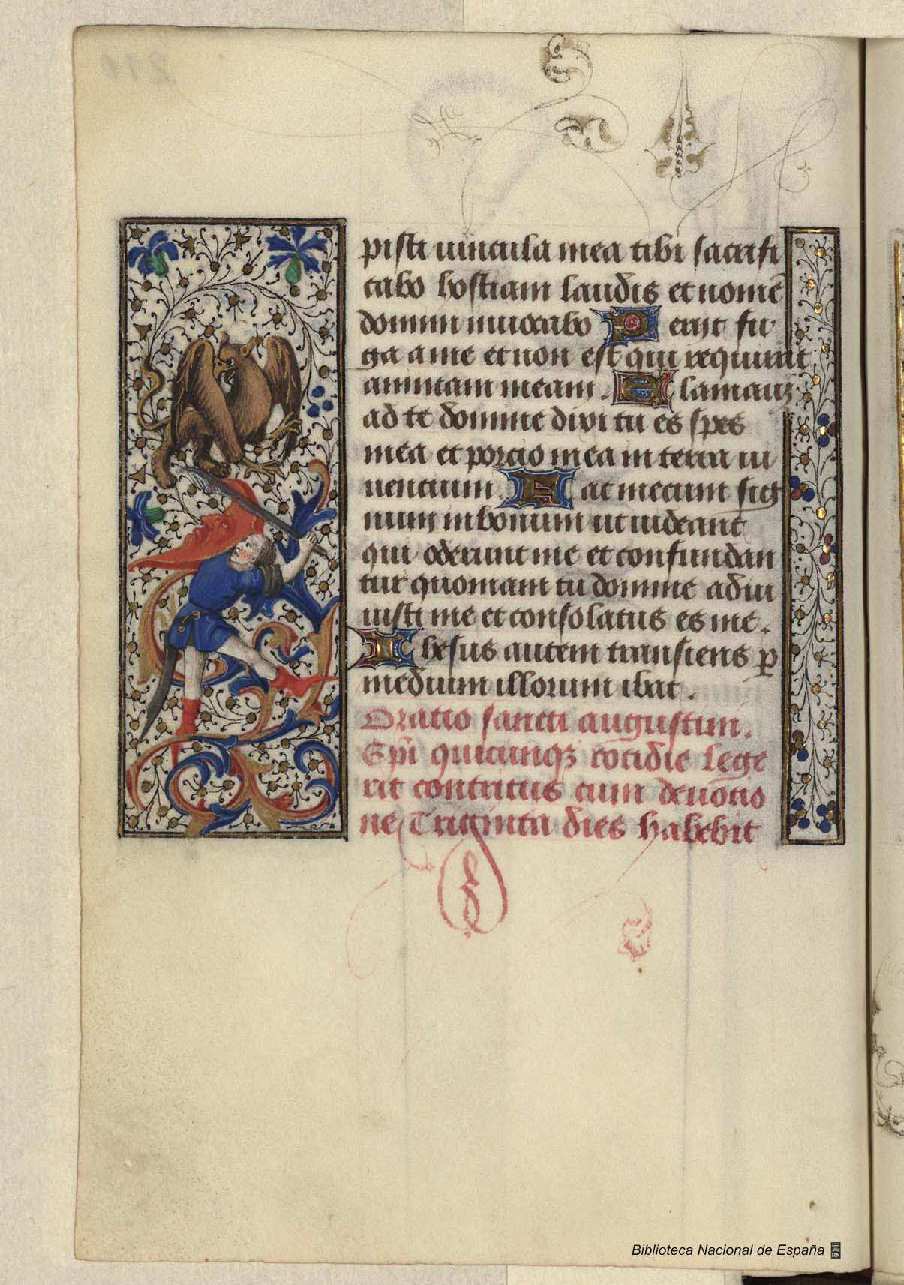 pisti uincula mea tibi sacrifi
cabo hostiam laudis et nomē
domini inuocabo Periit fu
ga a me et non est qui requirat
animam meam. Clamaui
ad te domine dixi tu es spes
mea et porcio mea in terra ui
uencium. Fac mecum sig
num in bonum ut uideant
qui oderunt me et confundan
tur quoniam tu domine adiu
uisti me et consolatus es me.
Ihesus autem transiens p
medium illorum ibat.
Oratio sancti augustini.
Spū quicunqꝫ cotidie lege
rit contritus cum deuocio
ne Triginta dies habebit
Biblioteca Nacional de España